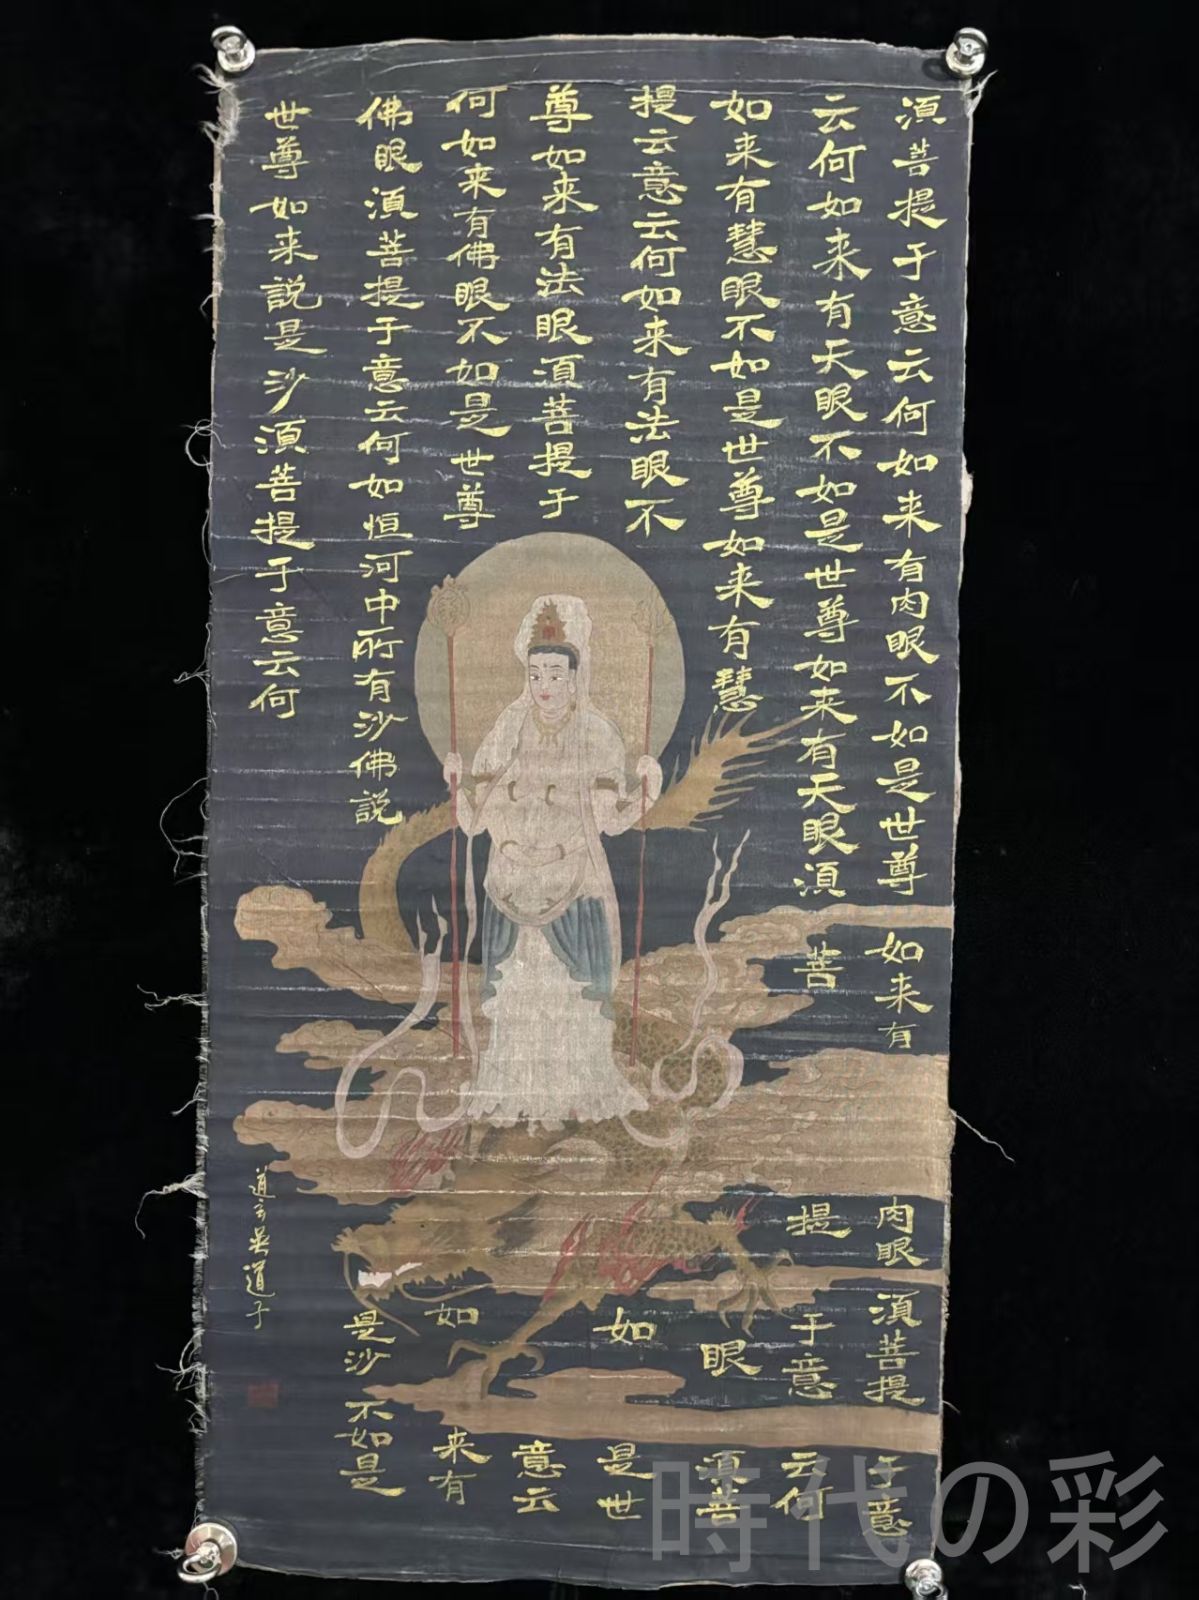 湏菩提于意云何如来有肉眼不如是世尊如来有肉眼湏菩提于意
云何如来有天眼不如是世尊如来有天眼湏菩提于意云何
如来有慧眼不如是世尊如来有慧眼湏菩
提云意云何如来有法眼不如是世
尊如来有法眼湏菩提于意云
何如来有佛眼不如是世尊如来有
佛眼湏菩提于意云何如恒河中所有沙佛説是沙不如是
世尊如来説是沙湏菩提于意云何
道玄吴道子
時代の彩